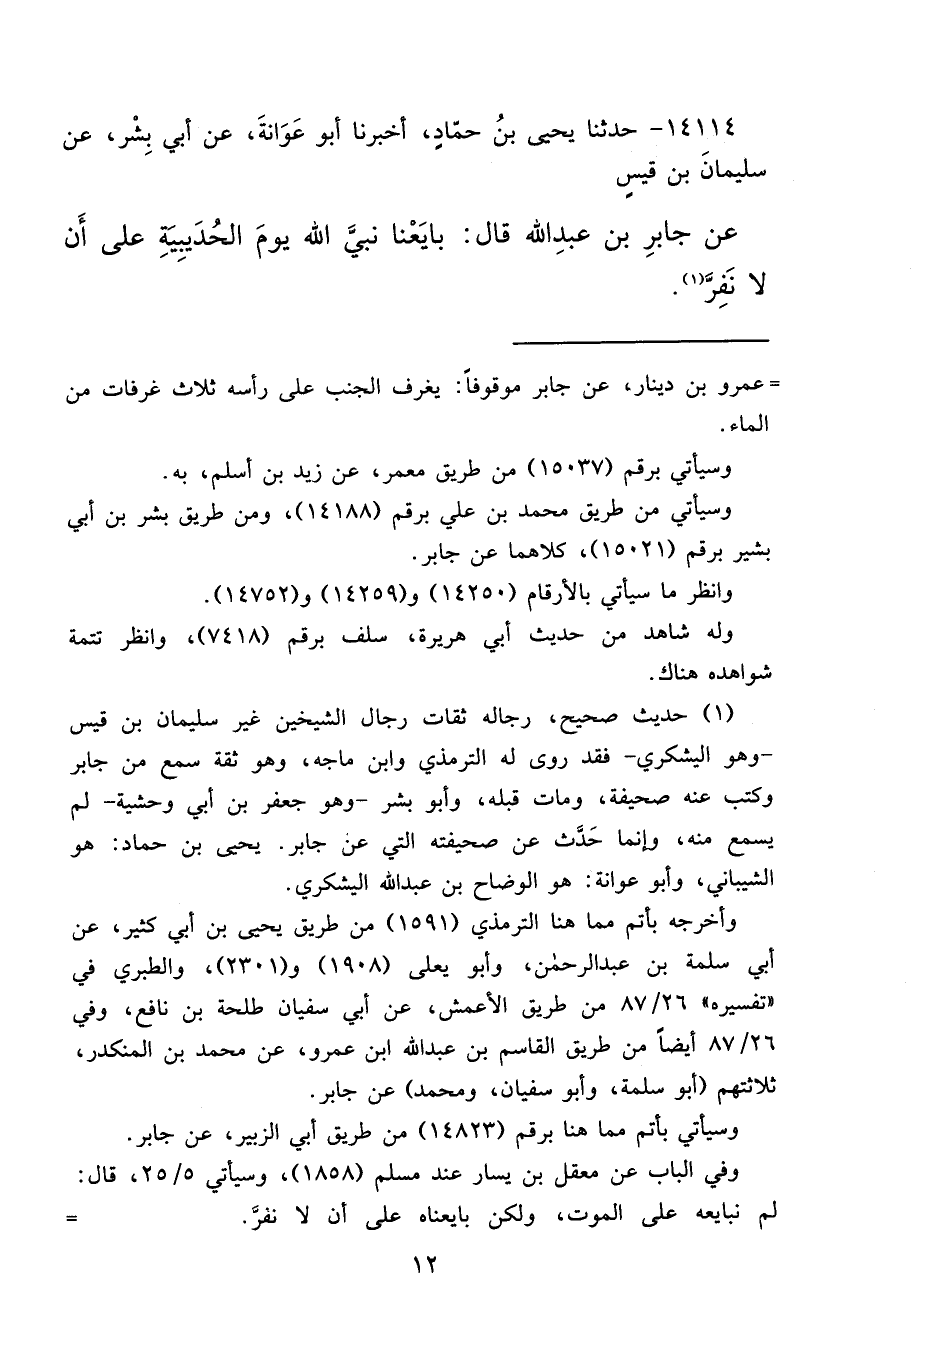 ١٤١١٤- حدثنا يحيى بنُ حمّادٍ، أخبرنا أبو عَوَانةَ، عن أبي بِشْر، عن
سليمانَ بن قيسٍ
عن جابرِ بن عبدِالله قال: بايَعْنا نبيَّ الله يومَ الحُدَيبِيَةِ على أَن
لا نَفِرَّ(١).
= عمرو بن دينار، عن جابر موقوفاً: يغرف الجنب على رأسه ثلاث غرفات من
الماء.
وسيأتي برقم (١٥٠٣٧) من طريق معمر، عن زيد بن أسلم، به.
وسيأتي من طريق محمد بن علي برقم (١٤١٨٨)، ومن طريق بشر بن أبي
بشير برقم (١٥٠٢١)، كلاهما عن جابر.
وانظر ما سيأتي بالأرقام (١٤٢٥٠) و(١٤٢٥٩) و(١٤٧٥٢).
وله شاهد من حديث أبي هريرة، سلف برقم (٧٤١٨)، وانظر تتمة
شواهده هناك.
(١) حديث صحيح، رجاله ثقات رجال الشيخين غير سليمان بن قيس
-وهو اليشكري- فقد روى له الترمذي وابن ماجه، وهو ثقة سمع من جابر
وكتب عنه صحيفة، ومات قبله، وأبو بشر -وهو جعفر بن أبي وحشية- لم
يسمع منه، وإنما حَدَّث عن صحيفته التي عن جابر. يحيى بن حماد: هو
الشيباني، وأبو عوانة: هو الوضاح بن عبدالله اليشكري.
وأخرجه بأتم مما هنا الترمذي (١٥٩١) من طريق يحيى بن أبي كثير، عن
أبي سلمة بن عبدالرحمٰن، وأبو يعلى (١٩٠٨) و(٢٣٠١)، والطبري في
«تفسيره» ٨٧/٢٦ من طريق الأعمش، عن أبي سفيان طلحة بن نافع، وفي
٨٧/٢٦ أيضاً من طريق القاسم بن عبدالله ابن عمرو، عن محمد بن المنكدر،
ثلاثتهم (أبو سلمة، وأبو سفيان، ومحمد) عن جابر.
وسيأتي بأتم مما هنا برقم (١٤٨٢٣) من طريق أبي الزبير، عن جابر.
وفي الباب عن معقل بن يسار عند مسلم (١٨٥٨)، وسيأتي ٢٥/٥، قال:
لم نبايعه على الموت، ولكن بايعناه على أن لا نفرَّ. =
١٢